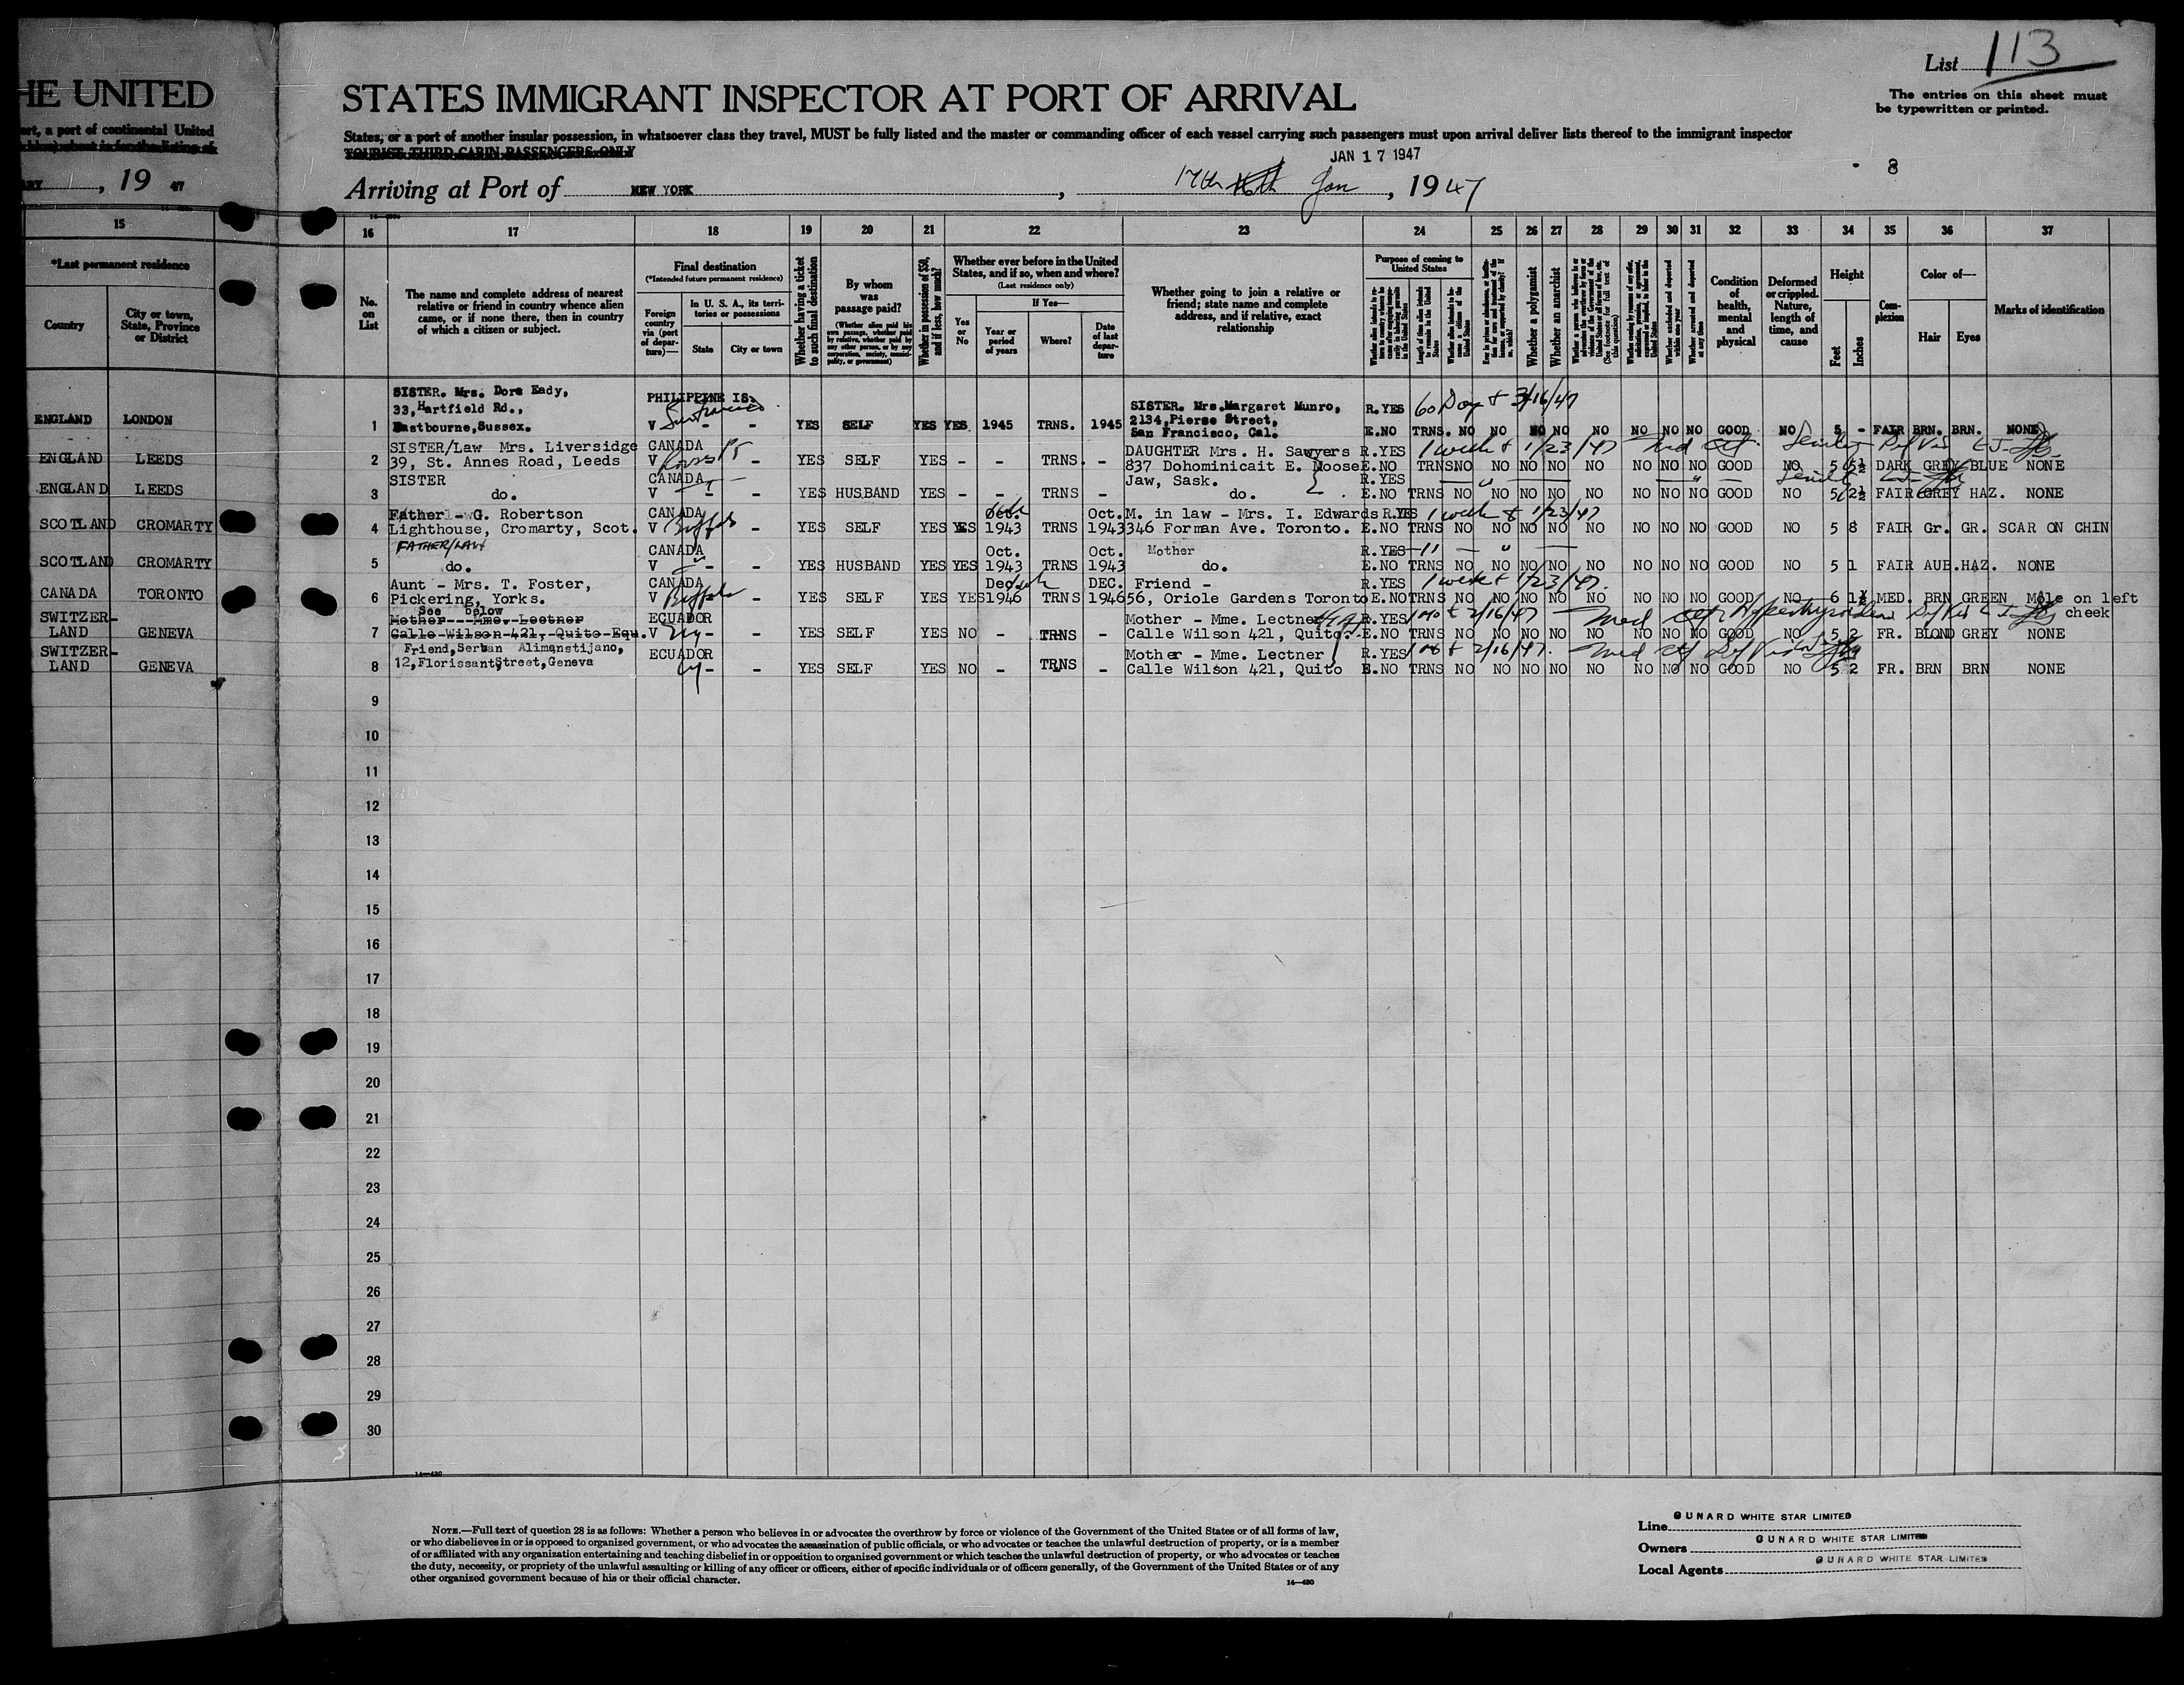 List 113
The entries on this sheet must
be typewritten or printed.
HE UNITED
STATES IMMIGRANT INSPECTOR AT PORT OF ARRIVAL
a port of continental United
States, or a port of another insular possession, in whatsoever class they travel, MUST be fully listed and the master or commanding officer of each vessel carrying such passengers must upon arrival deliver lists thereof to the immigrant inspector
TOURIST THIRD CABIN PASSENGERS ONLY
JAN 17 1947
8
, 19 47
Arriving at Port of NEW YORK , 17th 16th Jan , 1947
15 16 17 18 19 20 21 22 23 24 25 26 27 28 29 30 31 32 33 34 35 36 37
*Last permanent residence
Country
City or town,
State, Province
or District
No.
on
List
The name and complete address of nearest
relative or friend in country whence alien
came, or if none there, then in country
of which a citizen or subject.
Final destination
(*Intended future permanent residence)
Foreign
country
via (port
of depar-
ture)—
In U. S. A., its terri-
tories or possessions
State
City or town
Whether having a ticket
to such final destination
By whom
was
passage paid?
(Whether alien paid his
own passage, whether paid
by relative, whether paid by
any other person, or by any
corporation, society, munici-
pality, or government)
Whether in possession of $50,
and if less, how much?
Whether ever before in the United
States, and if so, when and where?
(Last residence only)
Yes
or
No
If Yes—
Year or
period
of years
Where?
Date
of last
depar-
ture
Whether going to join a relative or
friend; state name and complete
address, and if relative, exact
relationship
Purpose of coming to
United States
Whether a polygamist
Whether an anarchist
Condition
of
health,
mental
and
physical
Deformed
or crippled.
Nature,
length of
time, and
cause
Height
Feet
Inches
Com-
plexion
Color of—
Hair
Eyes
Marks of identification
SISTER. Mrs. Dora Eady,
33, Hartfield Rd., PHILIPPINE IS. SISTER. Mrs. Margaret Munro, R.YES 60 Days 3/16/47
ENGLAND LONDON 1 Eastbourne, Sussex. V - - YES SELF YES YES 1945 TRNS. 1945 2134, Pierse Street,
San Francisco, Cal. E.NO TRNS. NO NO NO NO NO NO NO NO GOOD NO 5 - FAIR BRN. BRN. NONE
SISTER/Law Mrs. Liversidge CANADA DAUGHTER Mrs. H. Sawyers R.YES 1 week 1/23/47 Med Cert Senile
ENGLAND LEEDS 2 39, St. Annes Road, Leeds V - YES SELF YES - - TRNS. - 837 Dohominicait E. Moose E.NO TRNS NO NO NO NO NO NO NO NO GOOD NO 5 5½ DARK GREY BLUE NONE
SISTER CANADA Jaw, Sask. R.YES " " Senile
ENGLAND LEEDS 3 do. V - - YES HUSBAND YES - - TRNS - do. E.NO TRNS NO NO NO NO NO NO NO NO GOOD NO 5 2½ FAIR GREY HAZ. NONE
Father law G. Robertson CANADA Oct. Oct. M. in law - Mrs. I. Edwards R.YES 1 week 1/23/47
SCOTLAND CROMARTY 4 Lighthouse, Cromarty, Scot. V Buffalo - YES SELF YES YES 1943 TRNS 1943 346 Forman Ave. Toronto. E.NO TRNS NO NO NO NO NO NO NO NO GOOD NO 5 8 FAIR Gr. GR. SCAR ON CHIN
FATHER/LAW CANADA Oct. Oct. Mother R.YES " "
SCOTLAND CROMARTY 5 do. V " - - YES HUSBAND YES YES 1943 TRNS 1943 do. E.NO TRNS NO NO NO NO NO NO NO NO GOOD NO 5 1 FAIR AUB. HAZ. NONE
Aunt - Mrs. T. Foster, CANADA Dec. DEC. Friend - R.YES 1 week 1/23/47.
CANADA TORONTO 6 Pickering, Yorks. V Buffalo - YES SELF YES YES 1946 TRNS 1946 56, Oriole Gardens Toronto E.NO TRNS NO NO NO NO NO NO NO NO GOOD NO 6 1½ MED. BRN GREEN Mole on left
cheek
See below
SWITZER- Mother - Mme. Lectner ECUADOR Mother - Mme. Lectner R.YES 1 mo 2/16/47 Med Cert Hyperthyroidism
LAND GENEVA 7 Calle Wilson 421, Quito Equ. V NY - - YES SELF YES NO - TRNS - Calle Wilson 421, Quito. E.NO TRNS NO NO NO NO NO NO NO NO GOOD NO 5 2 FR. BLOND GREY NONE
SWITZER- Friend, Serban Alimanstijano, ECUADOR Mother - Mme. Lectner R.YES 1 mo 2/16/47. Med Cert
LAND GENEVA 8 12, Florissant Street, Geneva NY - - YES SELF YES NO - TRNS - Calle Wilson 421, Quito E.NO TRNS NO NO NO NO NO NO NO NO GOOD NO 5 2 FR. BRN BRN NONE
9
10
11
12
13
14
15
16
17
18
19
20
21
22
23
24
25
26
27
28
29
30
14—430
NOTE.—Full text of question 28 is as follows: Whether a person who believes in or advocates the overthrow by force or violence of the Government of the United States or of all forms of law,
or who disbelieves in or is opposed to organized government, or who advocates the assassination of public officials, or who advocates or teaches the unlawful destruction of property, or is a member
of or affiliated with any organization entertaining and teaching disbelief in or opposition to organized government or which teaches the unlawful destruction of property, or who advocates or teaches
the duty, necessity, or propriety of the unlawful assaulting or killing of any officer or officers, either of specific individuals or of officers generally, of the Government of the United States or of any
other organized government because of his or their official character.
14—430
Line CUNARD WHITE STAR LIMITED
Owners CUNARD WHITE STAR LIMITED
Local Agents CUNARD WHITE STAR LIMITED